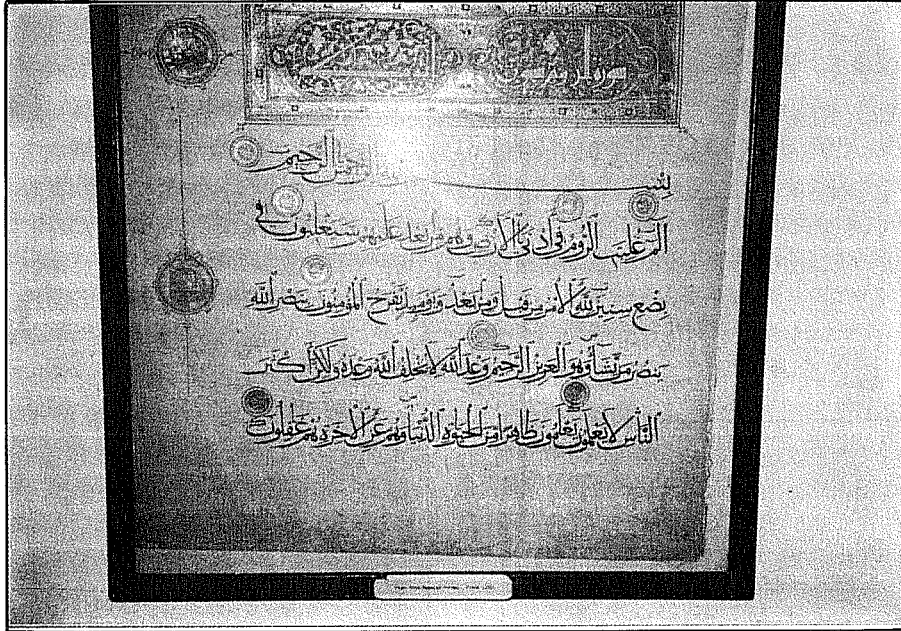 بسم الرحمن الرحيم
الم غلبت الروم في أدنى الأرض وهم من بعد غلبهم سيغلبون في
بضع سنين لله الأمر من قبل ومن بعد ويومئذ يفرح المؤمنون بنصر الله
ينصر من يشاء وهو العزيز الرحيم وعد الله لا يخلف الله وعده ولكن أكثر
الناس لا يعلمون يعلمون ظاهرا من الحيوة الدنيا وهم عن الآخرة هم غفلون